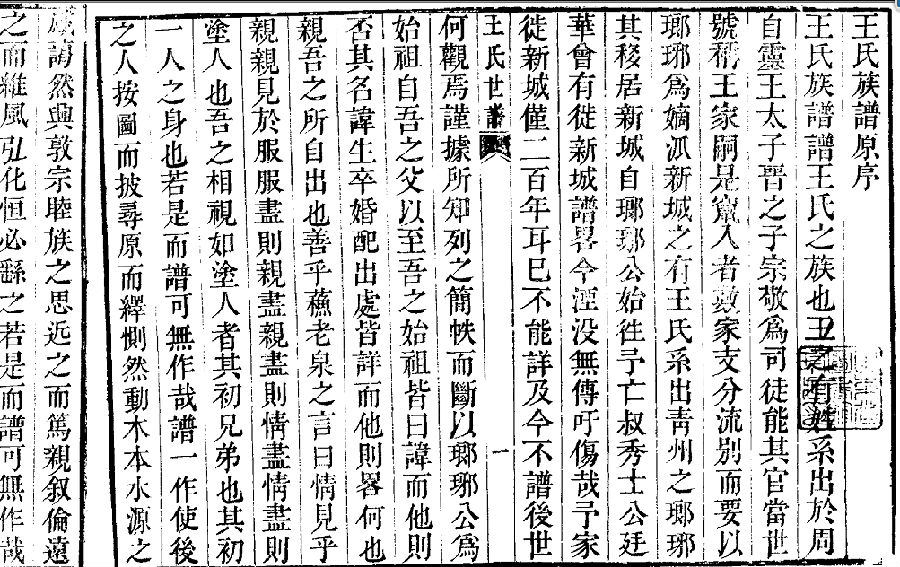 王氏族譜原序
王氏族譜譜王氏之族也王之有姓系出於周
自靈王太子晉之子宗敬為司徒能其官當世
號稱王家嗣是竄入者數家支分流别而要以
瑯琊為嫡派新城之有王氏系出青州之瑯琊
其移居新城自瑯琊公始徃予亡叔秀士公廷
華曾有徙新城譜畧今湮没無傳吁傷哉予家
徙新城僅二百年耳已不能詳及今不譜後世
王氏世譜 一
何觀焉謹據所知列之簡帙而斷以瑯琊公為
始祖自吾之父以至吾之始祖皆曰諱而他則
否其名諱生卒婚配出處皆詳而他則畧何也
親吾之所自出也善乎蘇老泉之言曰情見乎
親親見於服服盡則親盡親盡則情盡情盡則
塗人也吾之相視如塗人者其初兄弟也其初
一人之身也若是而譜可無作哉譜一作使後
之人按圖而披尋原而繹惻然動木本水源之
感藹然興敦宗睦族之思近之而篤親叙倫遠
之而維風弘化恒必繇之若是而譜可無作哉